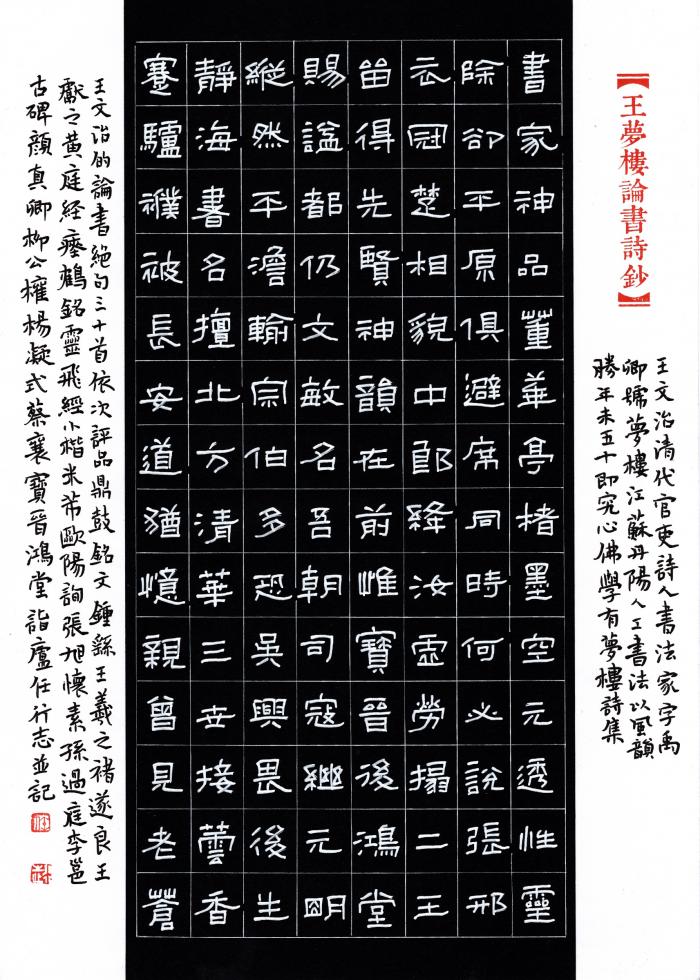 【王夢樓論書詩鈔】
王文治清代官吏詩人書法家字禹
卿號夢樓江蘇丹陽人工書法以風韻
勝年未五十即究心佛學有夢樓詩集
書家神品董華亭楮墨空元透性靈
除卻平原俱避席同時何必說張邢
衣冠楚相貌中郎絳汝虛勞搨二王
留得先賢神韻在前惟寶晉後鴻堂
賜謚都仍文敏名吾朝司寇繼元明
縱然平澹輸宗伯多恐吳興畏後生
靜海書名擅北方清華三世接蕓香
蹇驢襆被長安道猶憶親曾見老蒼
王文治的論書絕句三十首依次評品鼎鼓銘文鍾繇王羲之褚遂良王
獻之黃庭経瘞鶴銘靈飛経小楷米芾歐陽詢張旭懷素孫過庭李邕
古碑顏真卿柳公權楊凝式蔡襄寶晉鴻堂詣廬任行志並記